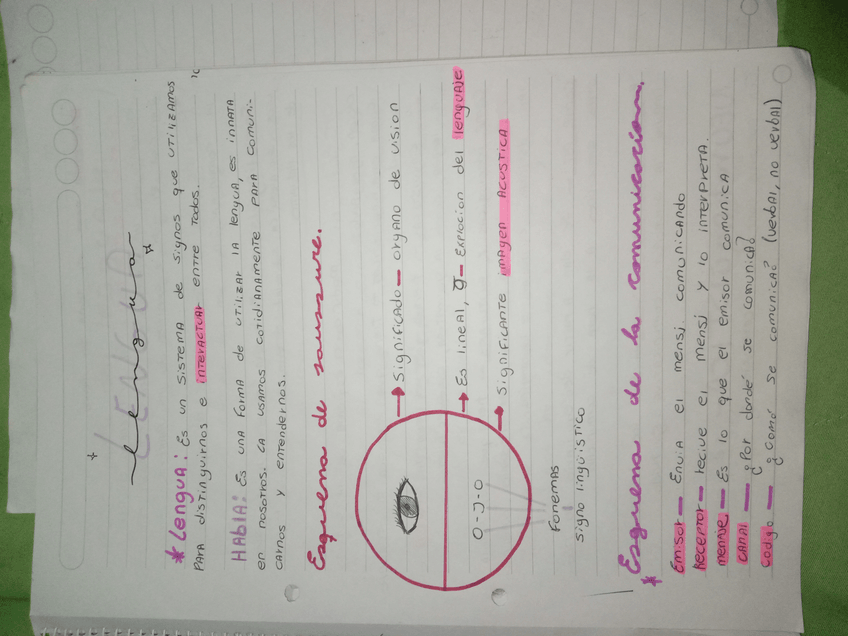 Lengua
* Lengua: Es un sistema de signos que utilizamos
para distinguirnos e interactuar entre todos.
Habla: Es una forma de utilizar la lengua, es innata
en nosotros. La usamos cotidianamente para comuni-
carnos y entendernos.
Esquema de saussure.
Significado — organo de vision
Es lineal, — Explocion del lenguaje
O-J-O
Significante imagen acustica
Fonemas
signo lingüistico
* Esquema de la comunicacion.
Emisor — Envia el mensj comunicando
Receptor — recive el mensj y lo interpreta.
mensaje — Es lo que el emisor comunica
canal — ¿Por dondé se comunica?
codigo — ¿Comó se comunica? (verbal, no verbal)